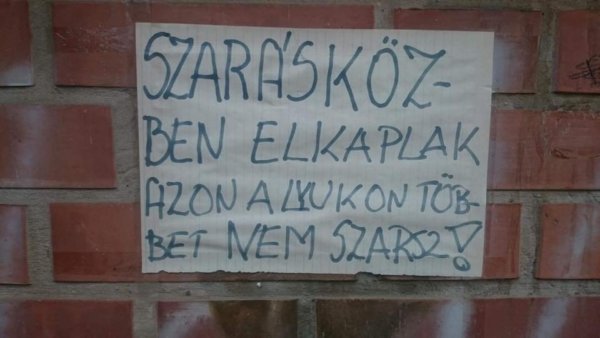 SZARÁSKÖZ-
BEN ELKAPLAK
AZON A LYUKON TÖB-
BET NEM SZARSZ!